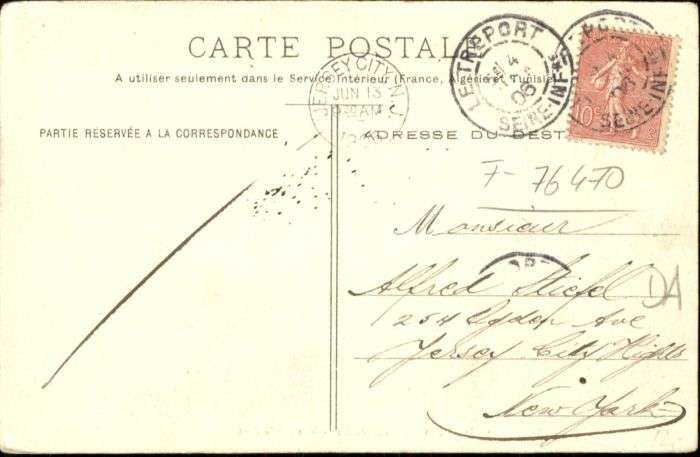 CARTE POSTALE
A utiliser seulement dans le Service Intérieur (France, Algérie et Tunisie
PARTIE RESERVÉE A LA CORRESPONDANCE
ADRESSE DU DEST
JERSEY CITY, N.J.
JUN 13
AM
LE TRÉPORT
4
06
SEINE-INFRE
PORT
06
SEINE-INF
10c
F-76470
Monsieur
Alfred Stiefel
DA
254 Ogden Ave
Jersey City Hights
New York